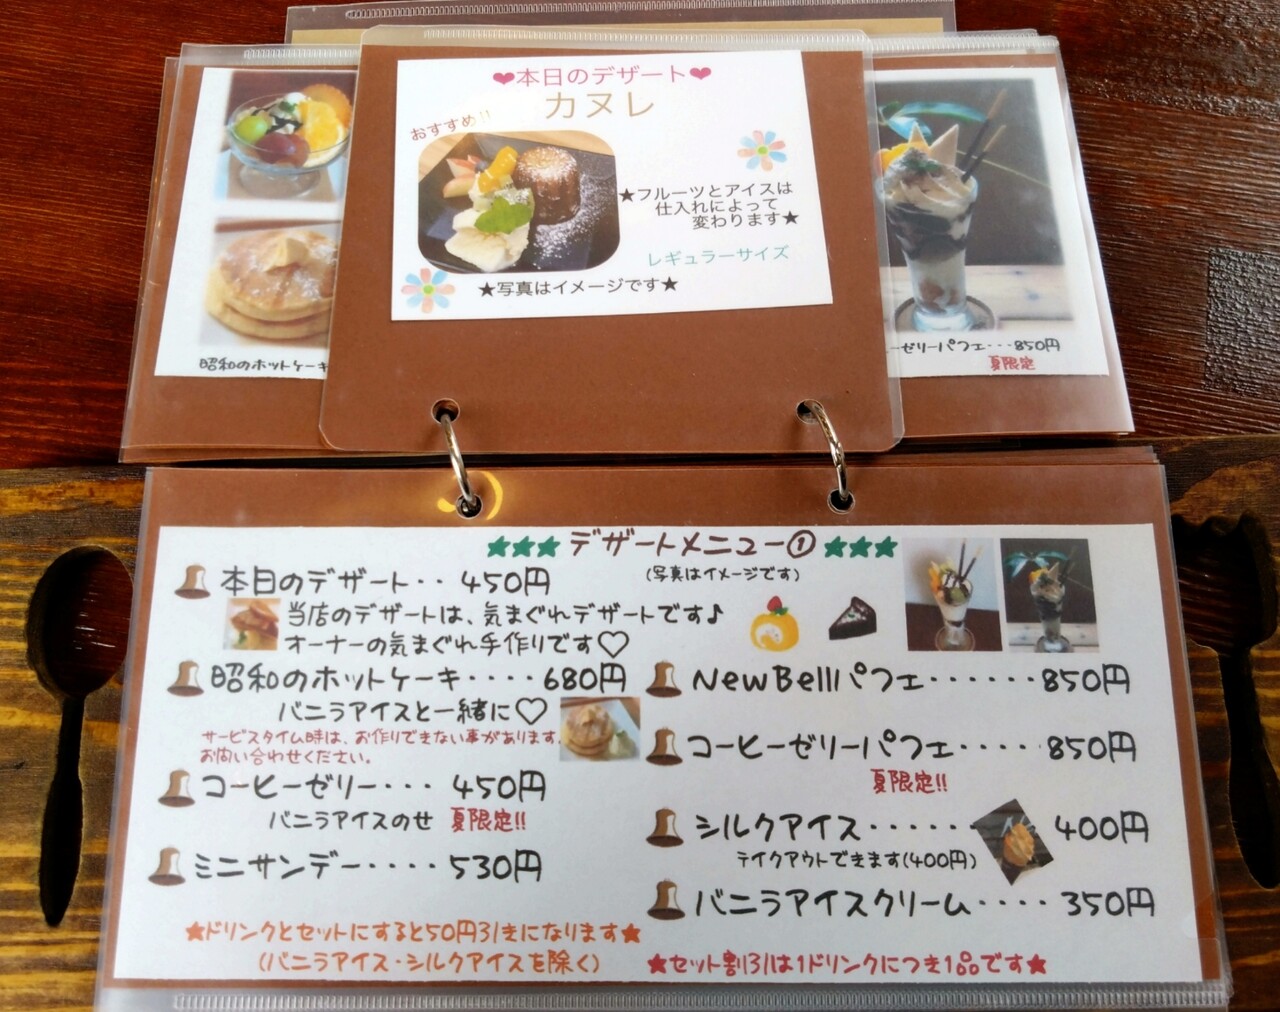 ❤本日のデザート❤
カヌレ
おすすめ!!
★フルーツとアイスは
仕入れによって
変わります★
レギュラーサイズ
★写真はイメージです★
昭和のホットケーキ
ーゼリーパフェ・・・850円
夏限定
★★★デザートメニュー①★★★
(写真はイメージです)
本日のデザート・・450円
当店のデザートは、気まぐれデザートです♪
オーナーの気まぐれ手作りです♡
昭和のホットケーキ・・・・680円
バニラアイスと一緒に♡
サービスタイム時は、お作りできない事があります。
お問い合わせください。
コーヒーゼリー・・・450円
バニラアイスのせ 夏限定!!
ミニサンデー・・・・530円
★ドリンクとセットにすると50円引きになります★
(バニラアイス・シルクアイスを除く)
NewBellパフェ・・・・・・850円
コーヒーゼリーパフェ・・・・・850円
夏限定!!
シルクアイス・・・・・・400円
テイクアウトできます(400円)
バニラアイスクリーム・・・・350円
★セット割引は1ドリンクにつき1品です★